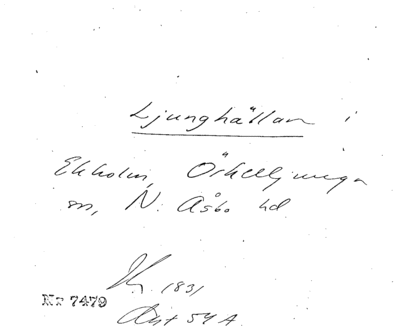 Ljunghällan i
Ekholm, Örkelljunga
sn, N. Åsbo hd
1831
Nr 7479
Avst 54 A